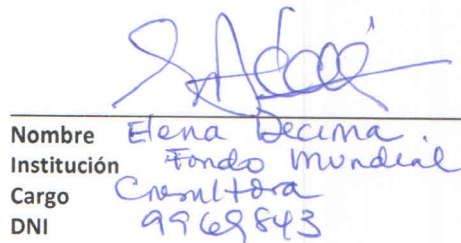 Nombre Elena Decima.
Institución Fondo Mundial
Cargo Consultora
DNI 9969843